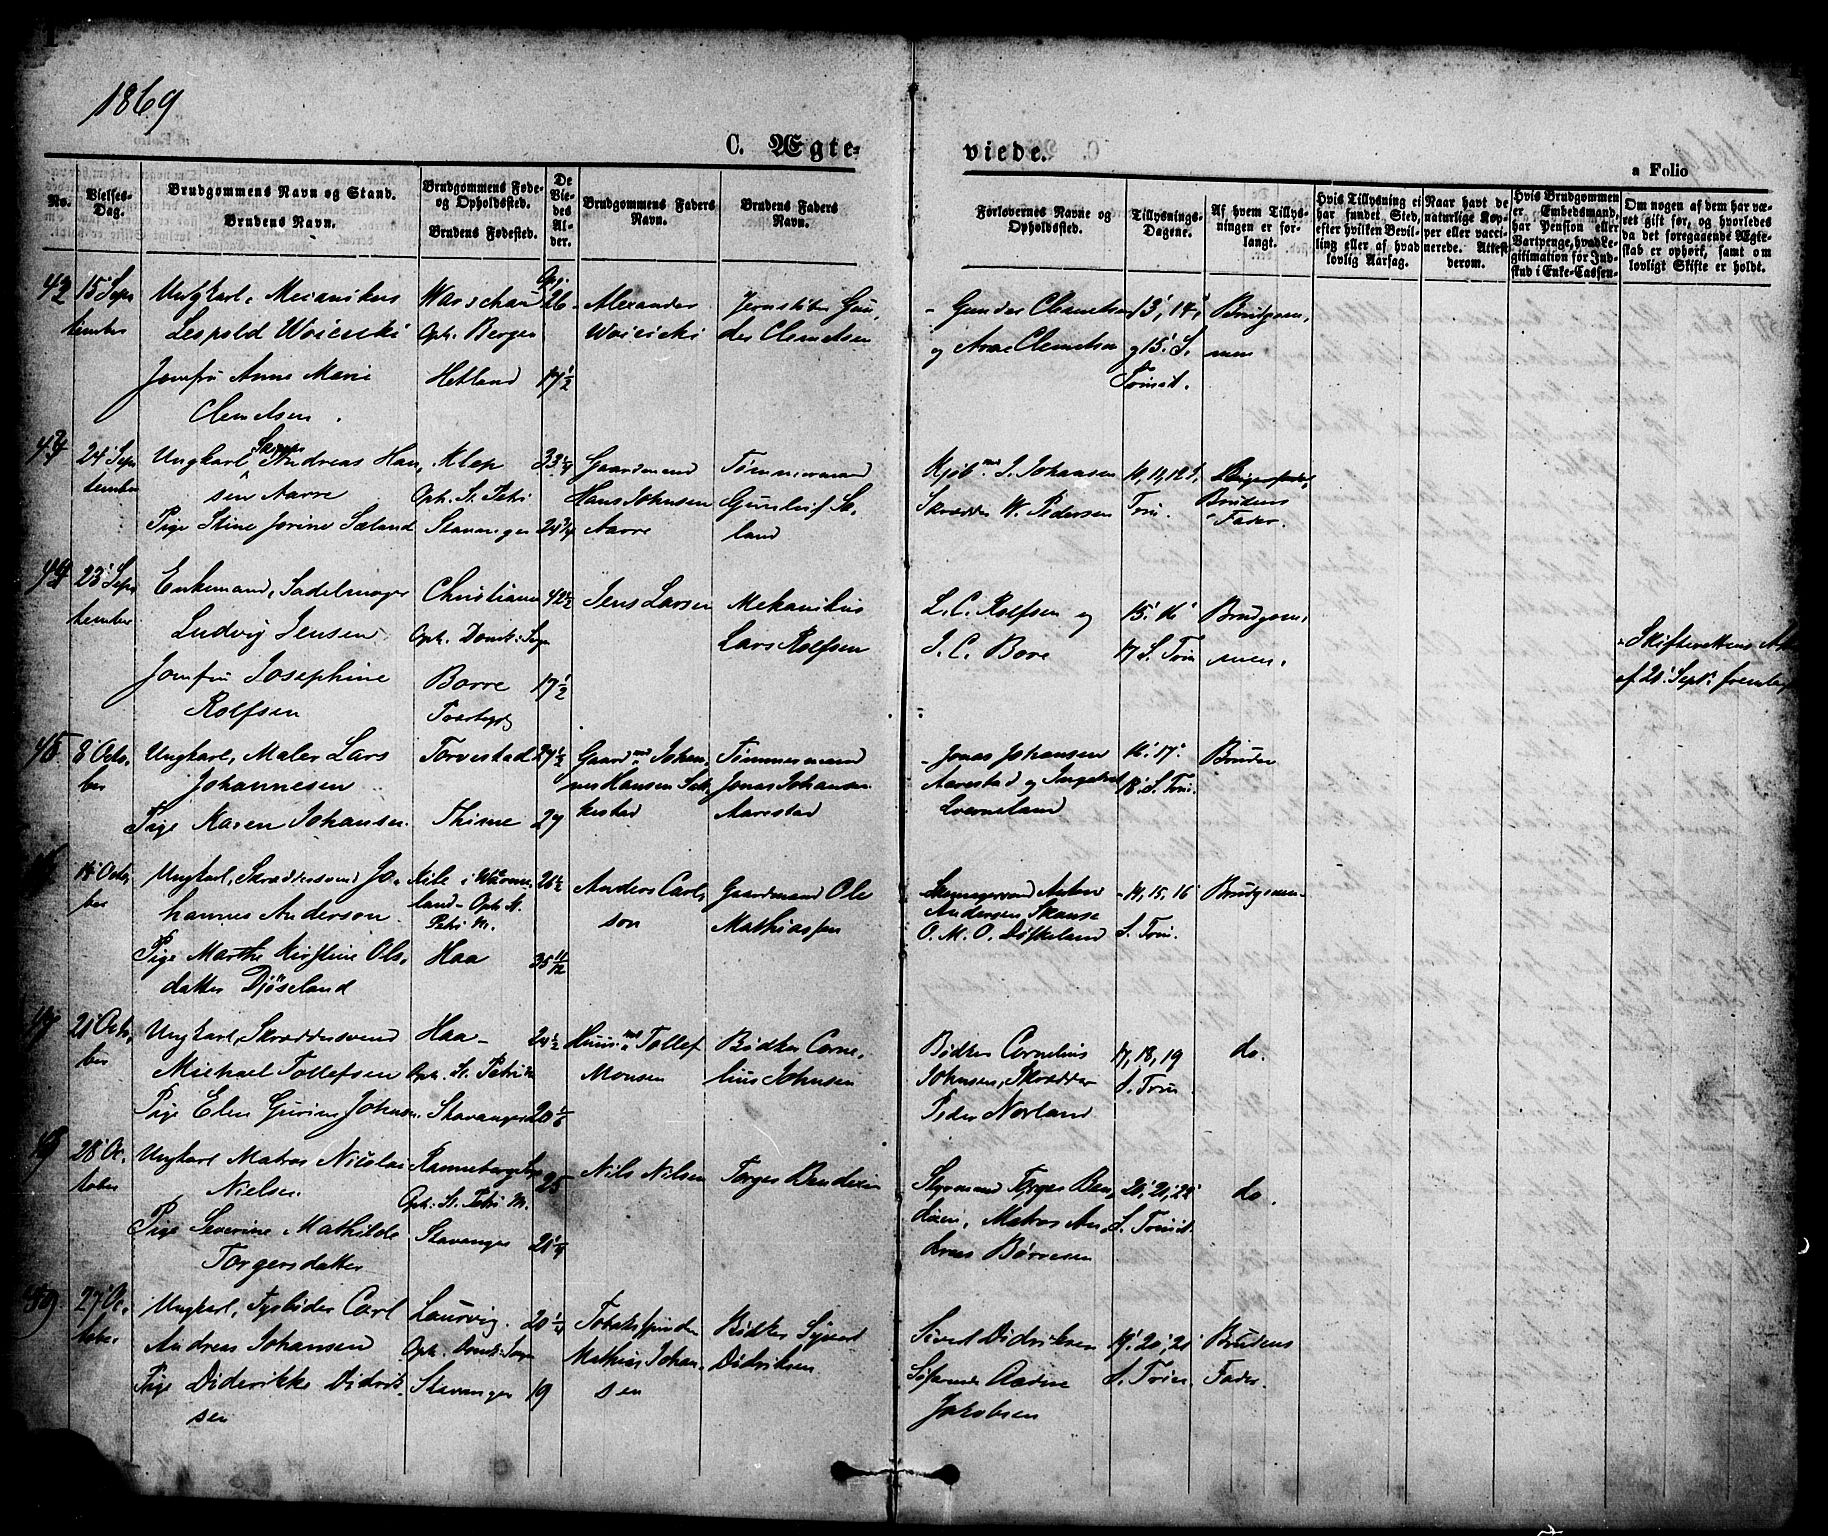 1869
C. Ægte-
viede.
a Folio
No.
Vielses-
Dag.
Brudgommens Navn og Stand.
Brudens Navn.
Brudgommens Føde-
og Opholdssted.
Brudens Fødested.
De
Vie-
des
Al-
der.
Brudgommens Faders
Navn.
Brudens Faders
Navn.
Forlovernes Navne og
Opholdssted.
Tillysnings-
Dagene.
Af hvem Tillys-
ningen er for-
langt.
Hvis Tillysning ei
har fundet Sted,
efter hvilken Bevil-
ling eller af hvad
lovlig Aarsag.
Naar havt de
naturlige Kop-
per eller vacci-
nerede. Attest
derom.
Hvis Brudgommen
er Embedsmand,
har Pension eller
Vartpenge, hvad Le-
gitimation for Ind-
skud i Enke-Cassen.
Om nogen af dem har væ-
ret gift før, og hvorledes
da det foregaaende Ægte-
skab er ophørt, samt om
lovligt Skifte er holdt.
42
15 Sep-
tember
Ungkarl, Mecanikus
Leopold Woicicki
Jomfru Anne Marie
Clemetsen.
Warschau
Oph. Bergen
Hetland
26
17 1/2
Alexander
Woicicki
Jernstøber Gun-
der Clemetsen
Gunder Clemetsen
og Arne Clemetsen
13', 14'
og 15' S.
Trinit.
Brudgom-
men
43
24' Sep-
tember
Ungkarl, Andreas Han-
sen Aarre
Pige Stine Jorine Sæland
Klep
Oph. St. Petri
Stavanger
33 1/4
24 3/4
Gaardmand
Hans Johnsen
Aarre
Tømmermand
Gunleif Sæ-
land
Kjøbmd. I. Johansen
Skrædder W. Pedersen
10, 11, 12 S.
Trin.
Brudens
Fader.
44
23' Sep-
tember
Enkemand, Sadelmager
Ludvig Jensen
Jomfru Josephine
Rolfsen
Christiania
Oph. Domk: Sogn
Borre
42 1/2
17 1/2
Jens Larsen
Mekanikus
Lars Rolfsen
L. C. Rolfsen og
I. C. Bore
15' 16'
17 S. Trin
Brudgom-
men.
Skifterettens Att.
af 21' Sept. fremlagt
45
8' Octo-
ber
Ungkarl, Maler Lars
Johannesen
Pige Karen Johansen
Torvestad
Thime
27 1/2
29
Gaardmd. Johan-
nes Hansen
Tømmermand
Jonas Johansen
Aarestad
Jonas Johansen
Aarestad og
Qverneland
16' 17'
18' S. Trin.
Bruden
46
14 Octo-
ber
Ungkarl, Skræddersvend Jo-
hannes Anderson
Pige Marthe Kirstine Ols-
datter Djøseland
i Wärme-
land - Oph. St.
Petri M.
Haa
26 1/2
35 11/12
Anders Carls-
son
Gaardmand Ole
Mathiassen
Anton
Andersen Skanse
O. M. O.
14, 15, 16
S. Trin.
Brudgommen
47
21' Octo-
ber
Ungkarl, Skræddersvend
Michael Tollefsen
Pige Elen Gurine Johnsen
Haa -
Oph. St. Petri M
Stavanger
24 1/2
Huusmd. Tollef
Monsen
Bødker Corne-
lius Johnsen
Bødker Cornelius
Johnsen, Skrædder
Peder Norland
17, 18, 19
S. Trin
do.
48
28' Oc-
tober
Ungkarl Matros Nicolai
Nielsen
Pige Severine Mathilde
Torgersdatter
Oph: St. Petri M.
Stavanger
25
21 1/4
Nils Nilsen
Torges Bendixen
Styrmand Torges Ben-
dixen, Matros An-
dreas Børresen
20', 21', 22'
S. Trinit.
do.
49
27' Oc-
tober
Ungkarl, Carl
Andreas Johansen
Pige Diderikke Didrik-
sen
Laurvig.
Oph. Domk: Sogn
Stavanger
20 1/4
19
Tobakspinder
Mathias Johan-
sen
Bødker Sivert
Didriksen
Sivert Didriksen
Jakobsen
19', 20', 21'
S. Trin.
Brudens
Fader.